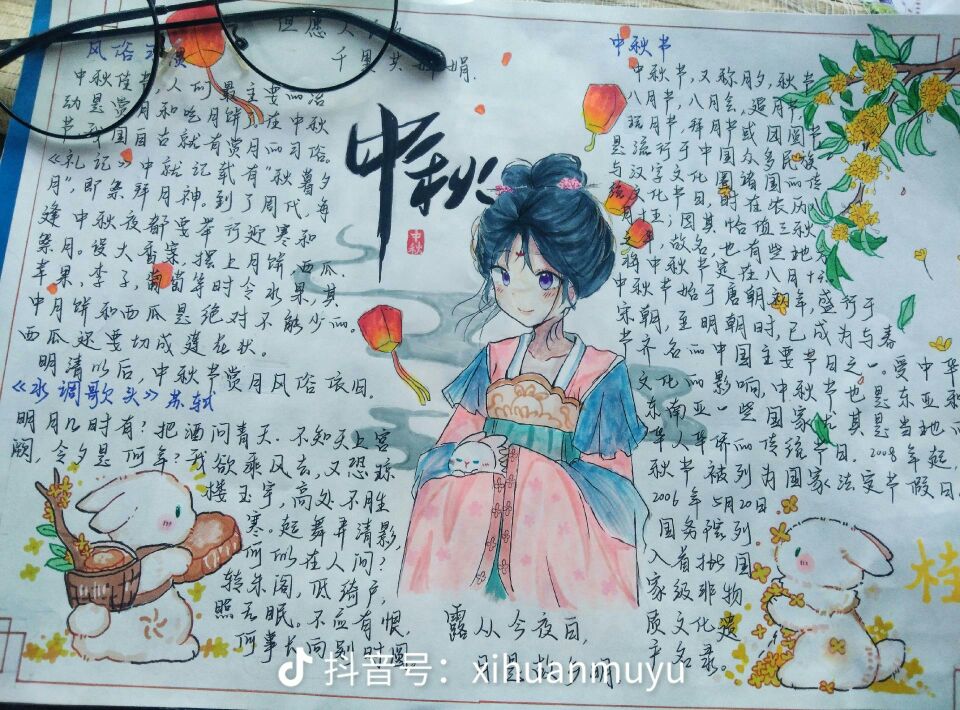 风俗
中秋佳节，人们最主要的活
动是赏月和吃月饼。在中秋
节，我国自古就有赏月的习俗。
《礼记》中就记载有“秋暮夕
月”，即祭拜月神。到了周代，每
逢中秋夜都要举行迎寒和
祭月。设大香案，摆上月饼，西瓜、
苹果，李子，葡萄等时令水果，其
中月饼和西瓜是绝对不能少的。
西瓜还要切成莲花状。
明清以后，中秋节赏月风俗依旧。
《水调歌头》苏轼
明月几时有？把酒问青天．不知天上宫
阙，今夕是何年？我欲乘风去，又恐琼
楼玉宇，高处不胜
寒。起舞弄清影，
何似在人间？
转朱阁，低绮户，
照无眠。不应有恨，
何事长向别时圆
但愿人
千里共婵娟．
中秋
中秋
中秋节
中秋节，又称月夕，秋节
八月节，八月会，追月节，
玩月节，拜月节或团圆节
是流行于中国众多民族
与汉字文化圈诸国的传
统文化节日，时在农历
八月十五；因其恰值三秋
之半，故名，也有些地方
将中秋节定在八月十六
中秋节始于唐朝初年，盛行于
宋朝，至明朝时，已成为与春
节齐名的中国主要节日之一。受中华
文化的影响，中秋节也是东亚和
东南亚一些国家尤其是当地的
华人华侨的传统节日。2008年起，
秋节被列为国家法定节假日。
2006年5月20日
国务院列
入首批国
家级非物
质文化遗
产名录。
桂
露从今夜白，
月是故乡明
抖音号：xihuanmuyu